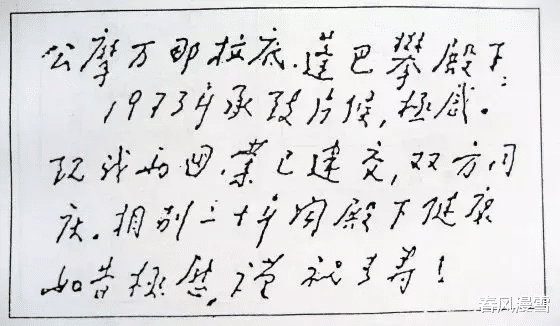 公摩万那拉底.蓬巴攀殿下:
1973年承致片候,極感。
现我两国,業已建交,双方同
庆。相别二十年闻殿下健康
如昔極慰,谨祝寿!
春风漫雪